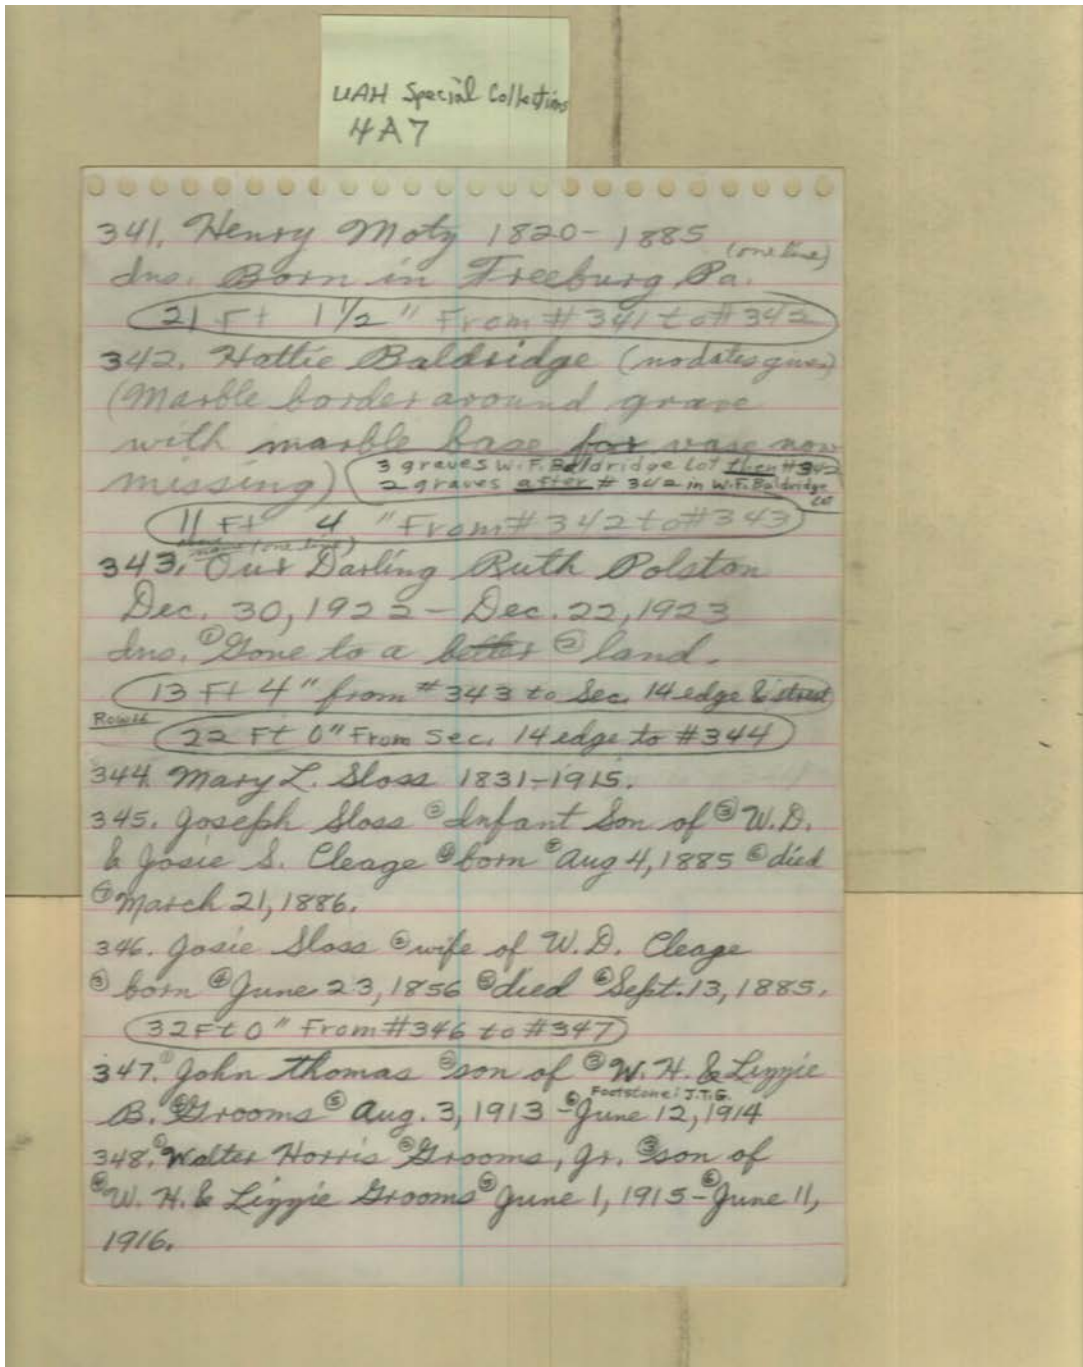 UAH Special Collections
4A7
341. Henry Moty 1820-1885
(one line)
Ins. Born in Freeburg, Pa.
21 Ft 1 1/2" From #341 to #342
342. Hattie Baldridge (no dates given)
(Marble border around grave
with marble base for vase now
missing)
3 graves W.F. Baldridge Lot then #342
2 graves after #342 in W.F. Baldridge
Lot
11 Ft 4" From #342 to #343
above name (one line)
343. Our Darling Ruth Polston
Dec. 30, 1922 - Dec. 22, 1923
Ins. ① Gone to a better ② land.
13 Ft 4" from #343 to Sec. 14 edge & street
Row
22 Ft 0" From Sec. 14 edge to #344
344. Mary L. Sloss 1831-1915.
345. Joseph Sloss ② Infant Son of ③ W.D.
& Josie S. Cleage ④ born ⑤ Aug 4, 1885 ⑥ died
⑦ March 21, 1886.
346. Josie Sloss ② wife of W.D. Cleage
③ born ④ June 23, 1856 ⑤ died ⑥ Sept. 13, 1885.
32 Ft 0" From #346 to #347
347. ① John Thomas ② son of ③ W.H. & Lizzie
Footstone: J.T.G.
B. ④ Grooms ⑤ Aug. 3, 1913 - ⑥ June 12, 1914
348. ① Walter Horris ② Grooms, Jr. ③ son of
④ W.H. & Lizzie Grooms ⑤ June 1, 1915 - ⑥ June 11,
1916.